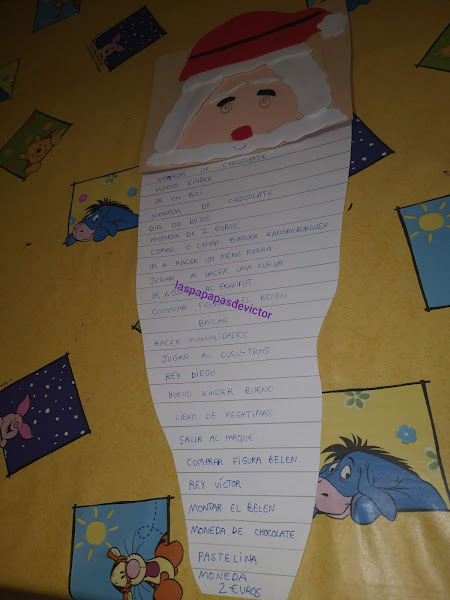 MONEDA DE CHOCOLATE
HUEVO KINDER
IR EN BICI
MONEDA DE CHOCOLATE
DIA DE BESOS
MONEDA DE 2 EUROS
COMER O CENAR BURGER KANGREBURGUER
IR A HACER UN MENU FUERA
JUGAR A HACER UNA CUEVA
IR A COMER AL FRANFUT
COMPRAR FIGURA DEL BELEN
laspapapasdevictor
BAILAR
HACER MANUALIDADES
JUGAR AL CUCU-TRAS
REY DIEGO
HUEVO KINDER BUENO
LIBRO DE PEGATINAS
SALIR AL PARQUE
COMPRAR FIGURA BELEN
REY VÍCTOR
MONTAR EL BELEN
MONEDA DE CHOCOLATE
PASTELINA
MONEDA
2 EUROS